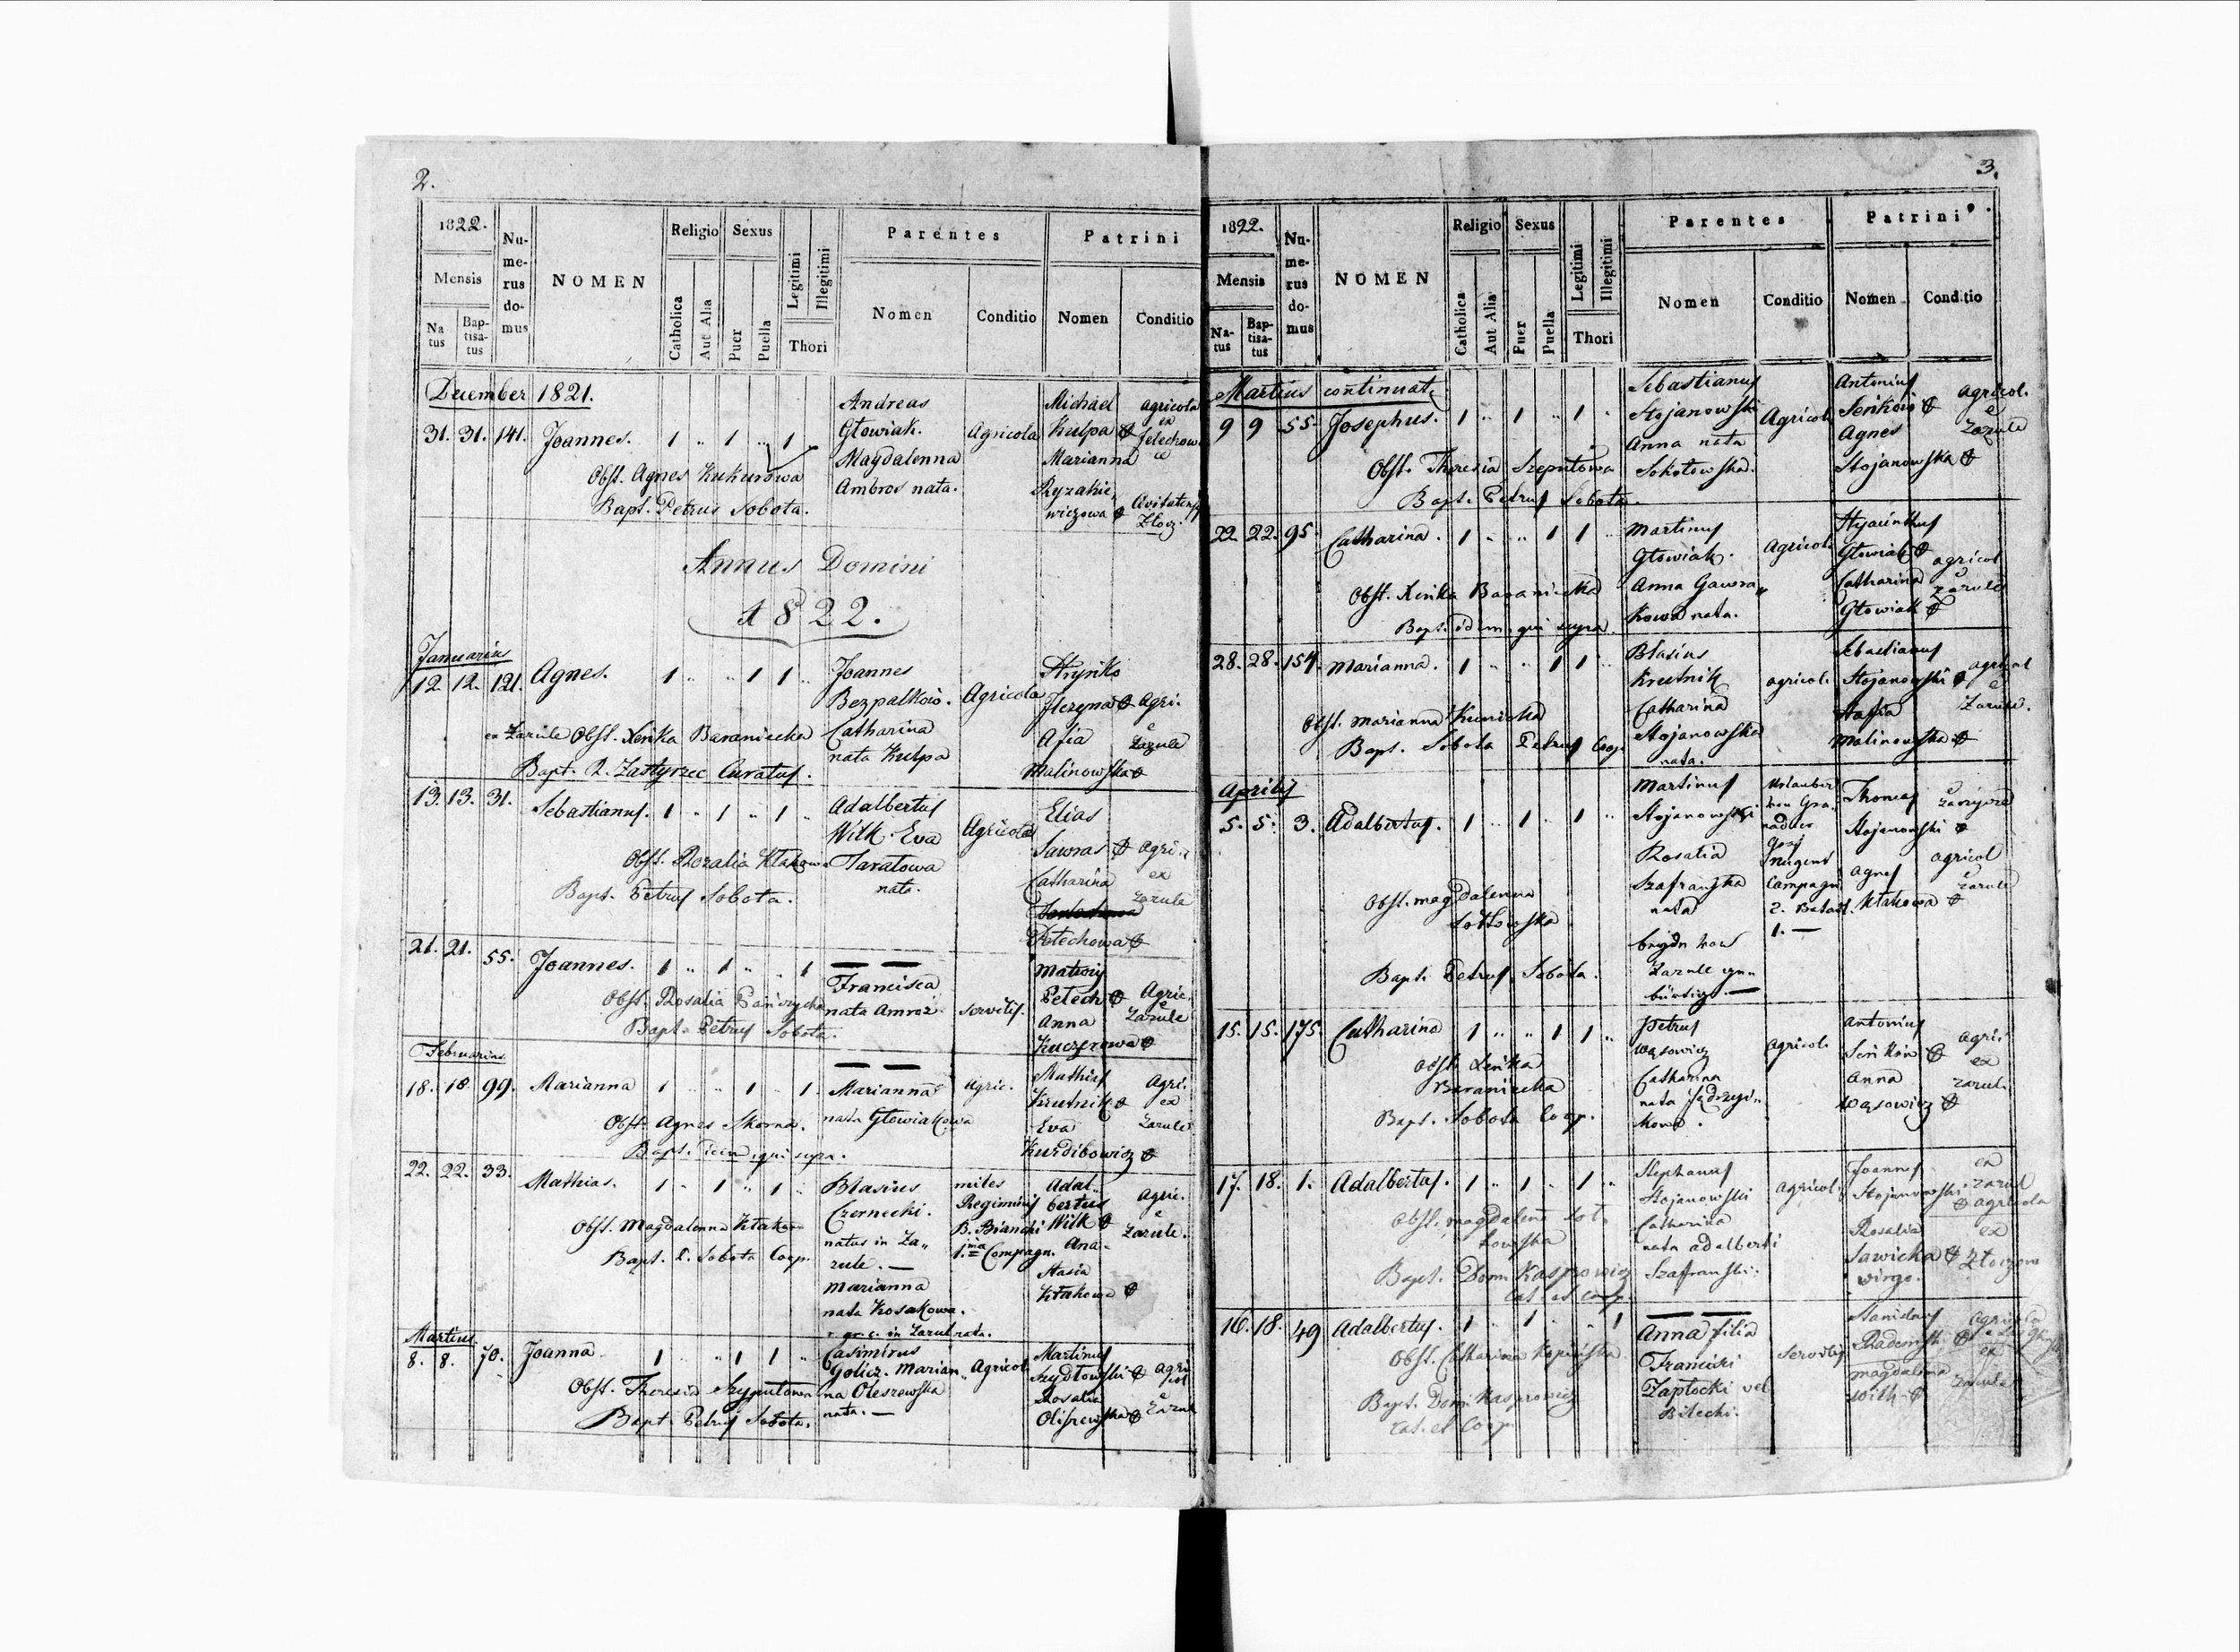 2.
1822.
Mensis
Na
tus
Bap-
tisa-
tus
Nu-
me-
rus
do-
mus
NOMEN
Religio
Catholica
Aut Alia
Sexus
Puer
Puella
Legitimi
Illegitimi
Thori
Parentes
Nomen
Conditio
Patrini
Nomen
Conditio
December 1821.
31. 31. 141. Joannes. 1 " 1 " 1
Andreas
Głowiak.
Magdalenna
Ambros nata.
Agricola
Michael
Kulpa
Marianna
agricola
ex
Obst. Agnes Kukurowa
Bapt. Petrus Sobota.
Annus Domini
1822.
Januarius
12. 12. 121. Agnes. 1 " " 1 1 "
Joannes
Bezpalkow.
Catharina
nata Kulpa
Agricola
Hryńko
Agri.
Afia
Zarule
Malinowska
ex Zarule Obst. Xeńka Baraniecka
Bapt. P. Zastyrzec Curatus.
13. 13. 31. Sebastianus. 1 " 1 " 1 "
Adalbertus
Wilk. Eva
Taratowa
nata.
Agricola
Elias
Sawras
Catharina
Petechowa
Agri.
ex
Zarule
Obst. Rozalia Kłakowa
Bapt. Petrus Sobota.
21. 21. 55. Joannes. 1 " 1 " " 1
Francisca
nata Amroz
servilis.
Matwij
Petech
Anna
Kuczerowa
Agric.
e
Zarule
Obst. Rosalia
Bapt. Petrus Sobota.
Februarius
18. 18. 99. Marianna 1 " " 1 " 1.
Marianna
nata Głowiakowa
agric.
Mathias
Krutnik
Eva
Kurdibowicz
Agri.
ex
Zarule
Obst. Agnes Skorna.
Bapt. idem qui supra.
22. 22. 33. Mathias. 1 " 1 " 1 "
Blasius
Czernecki.
natus in Za„
rule. —
Marianna
nata Kosakowa.
r. gr. c. in Zarul nata.
miles
Regiminis
B. Bianchi
1.ma Compagn.
Adal„
bertus
Wilk
Ana-
stasia
Kłakowa
Agric.
e
Zarule.
Obst. Magdalenna Kłakowa
Bapt. P. Sobota Coop.
Martius.
8. 8. 70. Joanna 1 " " 1 1 "
Casimirus
Golicz. Marian„
na Oleszewska
nata. —
Agricol.
Martinus
Szydłowski
Rosalia
Obst. Theresia Szyputowa
Bapt. Petrus Sobota.
3.
1822.
Mensis
Na-
tus
Bap-
tisa-
tus
Nu-
me-
rus
do-
mus
NOMEN
Religio
Catholica
Aut Alia
Sexus
Puer
Puella
Legitimi
Illegitimi
Thori
Parentes
Nomen
Conditio
Patrini
Nomen
Conditio
Martius continuat.
9 9 55. Josephus. 1 " 1 " 1 "
Sebastianus
Stojanowski
Anna nata
Sokołowska.
Agricol.
Antonius
Seńkow
Agnes
Stojanowska
agricol.
e
Zarule
Obst. Theresia Szeputowa
Bapt. Petrus Sobota.
22. 22. 95. Catharina. 1 " " 1 1 "
Martinus
Głowiak.
Anna Gawra„
kowa nata.
Agricol.
Hyacinthus
Głowiak
Catharina
Głowiak
agricol
e
Zarule
Obst. Xeńka Baraniecka
Bapt. idem qui supra.
28. 28. 154. Marianna. 1 " " 1 1 "
Blasius
Krutnik
Catharina
Stojanowska
nata.
agricol.
Sebastianus
Stojanowski
Malinowska
agricol
e
Zarule.
Obst. Marianna
Bapt. Sobota Petrus Coop.
Aprilis
5. 5. 3. Adalbertus. 1 " 1 " 1 "
Martinus
Stojanowski
Rosalia
Szafrańska
nata
Zarule
Urlauber
Nugent
Compagn.
2.
1. —
Thomas
Stojanowski
Agnes
Kłakowa
agricol
Zarule
Obst. Magdalenna
Bapt. Petrus Sobota.
15. 15. 175. Catharina 1 " " 1 1 "
Petrus
Wąsowicz
Catharina
nata
Agricol.
Antonius
Seńkow
Anna
Wąsowicz
agri.
ex
Zarul.
Obst. Xeńka
Baraniecka
Bapt. Sobota Coop.
17. 18. 1. Adalbertus. 1 " 1 " 1 "
Stephanus
Stojanowski
Catharina
nata Adalberti
Szafrański.
agricol.
Joannes
Stojanowski
Rosalia
Sawicka
virgo.
ex
Zarul
agricola
ex
Obst. Magdalena
Bapt. Dom. Kasprowicz
Cat. et Coop.
16. 18. 49 Adalbertus. 1 " 1 " " 1
Anna filia
Francisci
Zapłocki vel
Bilecki.
servilis
Stanislaus
Radomski
Magdalena
Wilk
ex
Zarule
Obst. Catharina
Bapt. Dom. Kasprowicz
Cat. et Coop.